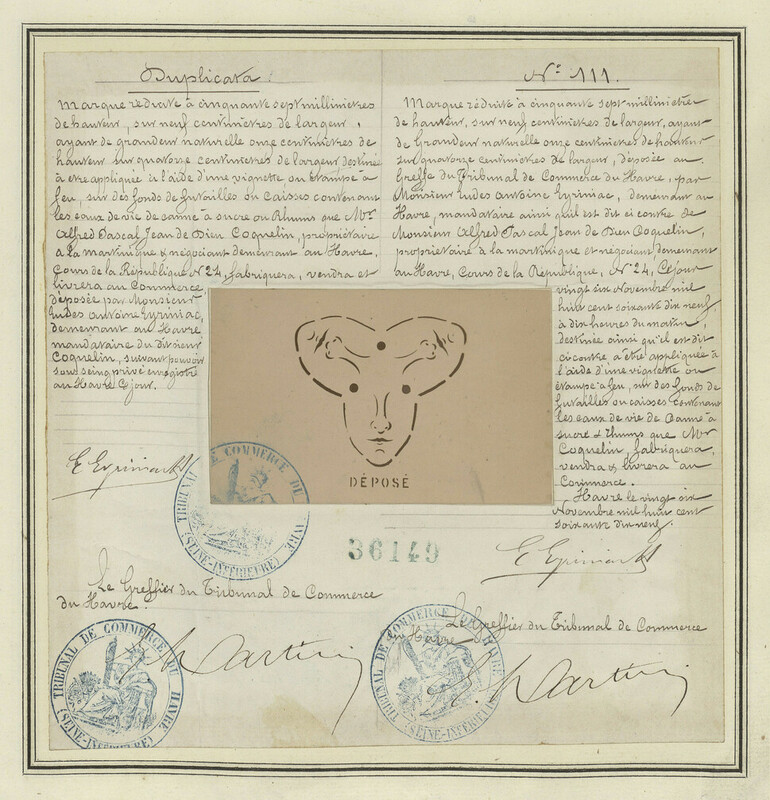 Duplicata.
Marque réduite à cinquante sept millimètres
de hauteur, sur neuf centimètres de largeur,
ayant de grandeur naturelle onze centimètres de
hauteur sur quatorze centimètres de largeur destinée
à être appliquée à l'aide d'une vignette ou Estampe à
feu, sur des fonds de futailles ou caisses contenant
les eaux de vie de canne à sucre ou Rhums que Mr
Alfred Pascal Jean de Dieu Coquelin, propriétaire
à la martinique & négociant demeurant au Havre,
Cours de la République N° 24, fabriquera, vendra et
livrera au Commerce
déposée par Monsieur
Eudes Antoine Eyriniac,
demeurant au Havre
mandataire du dit sieur
Coquelin, suivant pouvoir
sous seing privé enregistré
au Havre Ce jour.
Le Greffier du Tribunal de Commerce
du Havre.
N° 111.
Marque réduite à cinquante sept millimètres
de hauteur, sur neuf centimètres de largeur, ayant
de Grandeur naturelle onze centimètres de hauteur
sur quatorze centimètres de largeur, déposée au
Greffe du Tribunal de Commerce du Havre, par
Monsieur Eudes Antoine Eyriniac, demeurant au
Havre, mandataire ainsi qu'il est dit ci contre de
Monsieur Alfred Pascal Jean de Dieu Coquelin,
propriétaire à la martinique et négociant demeurant
au Havre, Cours de la République, N° 24, Ce jour
vingt six Novembre mil
huit cent soixante dix neuf,
à dix heures du matin,
destinée ainsi qu'il est dit
ci contre à être appliquée à
l'aide d'une vignette ou
estampe à feu, sur des fonds de
futailles ou caisses contenant
les eaux de vie de Canne à
sucre & Rhums que Mr
Coquelin, fabriquera,
vendra & livrera au
Commerce.
Havre le vingt six
Novembre mil huit cent
soixante dix neuf.
Le Greffier du Tribunal de Commerce
du Havre
DÉPOSÉ
36149
TRIBUNAL DE COMMERCE DU HAVRE
(SEINE-INFÉRIEURE)
TRIBUNAL DE COMMERCE DU HAVRE
(SEINE-INFÉRIEURE)
TRIBUNAL DE COMMERCE DU HAVRE
(SEINE-INFÉRIEURE)